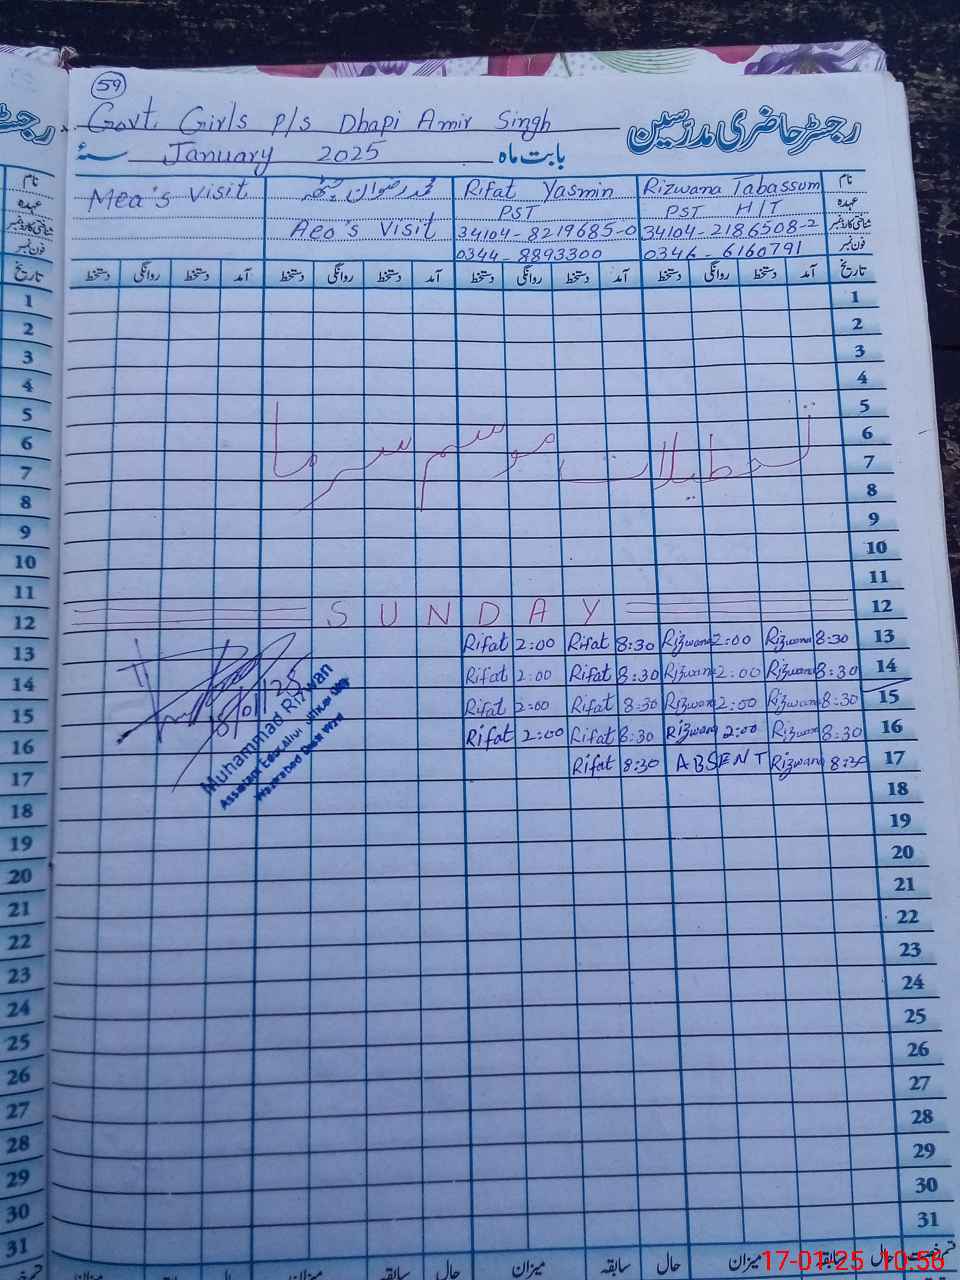 59
Govt. Girls P/S Dhapi Amir Singh رجسٹر حاضری مدرسین
بابت ماہ January 2025 سنہ
نام Rizwana Tabassum Rifat Yasmin محمد رضوان چٹھہ Mea's Visit
عہدہ PST HIT PST Aeo's Visit
شناختی کارڈ نمبر 34104-2186508-2 34104-8219685-0
فون نمبر 0346-6160791 0344-8893300
تاریخ آمد دستخط روانگی دستخط آمد دستخط روانگی دستخط آمد دستخط روانگی دستخط آمد دستخط روانگی دستخط تاریخ
1 1
2 2
3 3
4 4
5 5
6 6
تعطیلات موسم سرما
7 7
8 8
9 9
10 10
11 11
12 SUNDAY 12
13 Rifat 2:00 Rifat 8:30 Rizwana 2:00 Rizwana 8:30 13
14 Rifat 2:00 Rifat 8:30 Rizwana 2:00 Rizwana 8:30 14
15 Rifat 2:00 Rifat 8:30 Rizwana 2:00 Rizwana 8:30 15
16 Rifat 2:00 Rifat 8:30 Rizwana 2:00 Rizwana 8:30 16
17 Rifat 8:30 ABSENT Rizwana 8:30 17
/01/25
Muhammad Rizwan
Assistant Education Officer
Wazirabad
18 18
19 19
20 20
21 21
22 22
23 23
24 24
25 25
26 26
27 27
28 28
29 29
30 30
31 31
حال سابقہ میزان حال سابقہ میزان حال سابقہ میزان
17-01-25 10:56